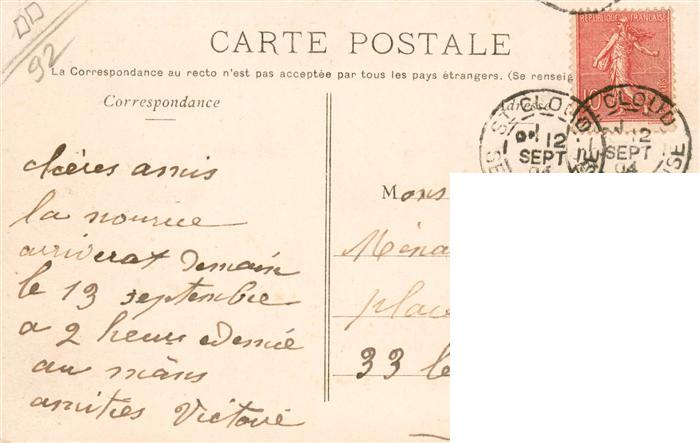 DD
92
CARTE POSTALE
La Correspondance au recto n'est pas acceptée par tous les pays étrangers. (Se renseig
Correspondance
Adresse
REPUBLIQUE FRANÇAISE
10
ST CLOUD
12
SEPT
04
ST CLOUD
12
SEPT
04
chères amis
la nourice
arriverat demain
le 13 septembre
a 2 heure demie
au mans
amitiés Victoire
Mons
Ména
place
33 le